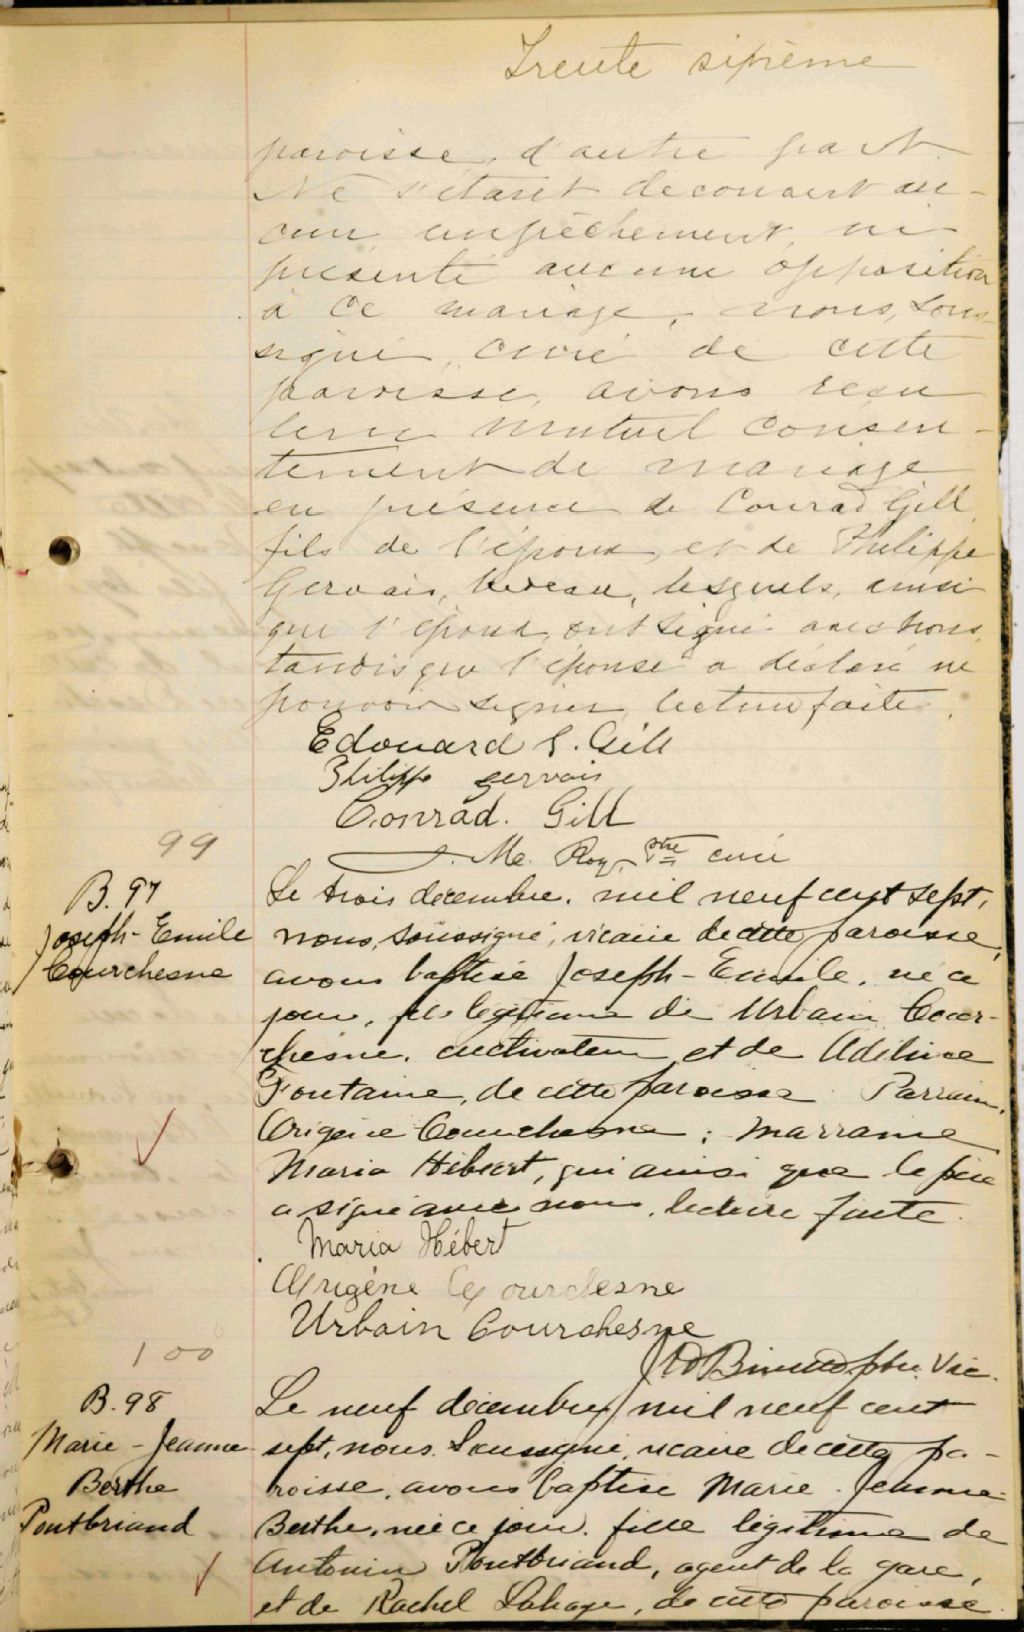 Trente sixième
paroisse, d'autre part.
Ne s'étant decouvert au-
cun empêchement, ni
présenté aucune opposition
à ce mariage, nous, sous-
signé, curé de cette
paroisse, avons reçu
leur mutuel consen-
tement de mariage
en présence de Conrad Gill
fils de l'époux, et de Philippe
Gervais, bedeau, lesquels, ainsi
que l'époux, ont signé avec nous,
tandis que l'épouse a déclaré ne
pouvoir signer, lecture faite.
Edouard Gill
Philippe gervais
Conrad. Gill
99
Me. Roy, Ptre curé
B. 97
Joseph-Emile
Courchesne
Le trois décembre, mil neuf cent sept,
nous, soussigné, vicaire de cette paroisse,
avons baptisé Joseph-Emile, né ce
jour, fils légitime de Urbain Cour-
chesne, cultivateur et de
Fontaine, de cette paroisse Parrain,
Origène Courchesne; marraine
Maria Hébert, qui ainsi que le père
a signé avec nous, lecture faite.
Maria Hébert
Origène Courchesne
Urbain Courchesne
ptre. Vic.
100
B. 98
Marie-Jeanne
Berthe
Pontbriand
Le neuf décembre, mil neuf cent
sept, nous, soussigné, vicaire de cette pa-
roisse, avons baptisé Marie-Jeanne-
Berthe, née ce jour, fille légitime de
Antonin Pontbriand, agent de la gare,
et de Rachel Lahaye, de cette paroisse.